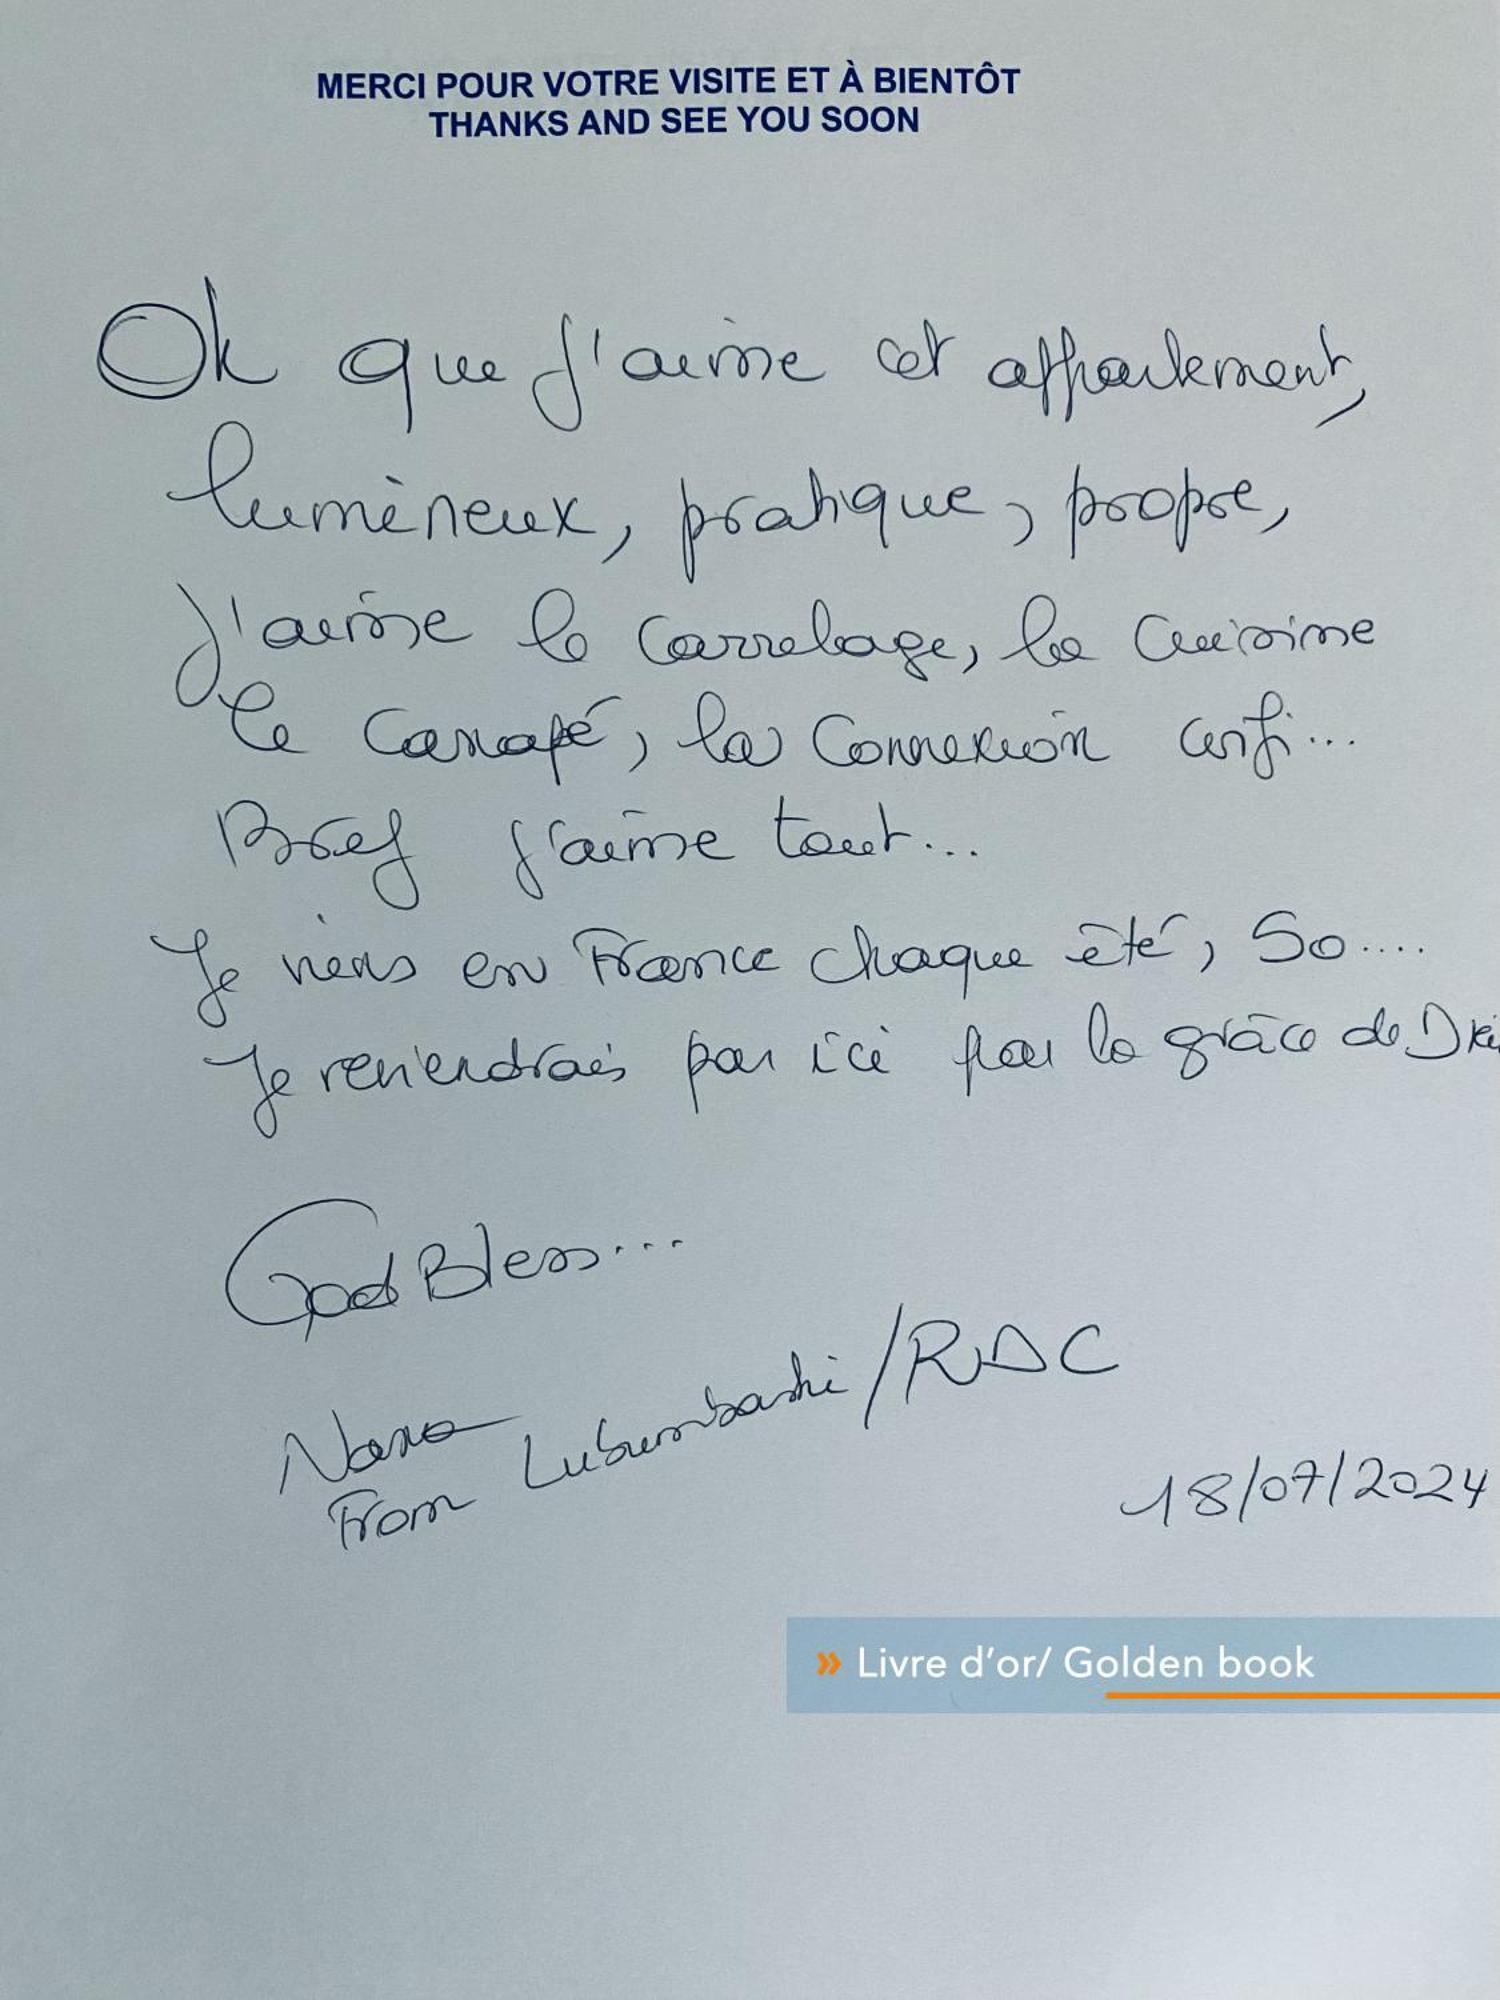 MERCI POUR VOTRE VISITE ET À BIENTÔT
THANKS AND SEE YOU SOON
Oh que j'aime cet appartement,
lumineux, pratique, propre,
J'aime le carrelage, la cuisine
le canapé, la connexion wifi...
Bref j'aime tout...
Je viens en France chaque été, So....
Je reviendrais par ici par la grâce de
God Bless...
Nana
From Lubumbashi/RDC
18/07/2024
» Livre d'or/ Golden book